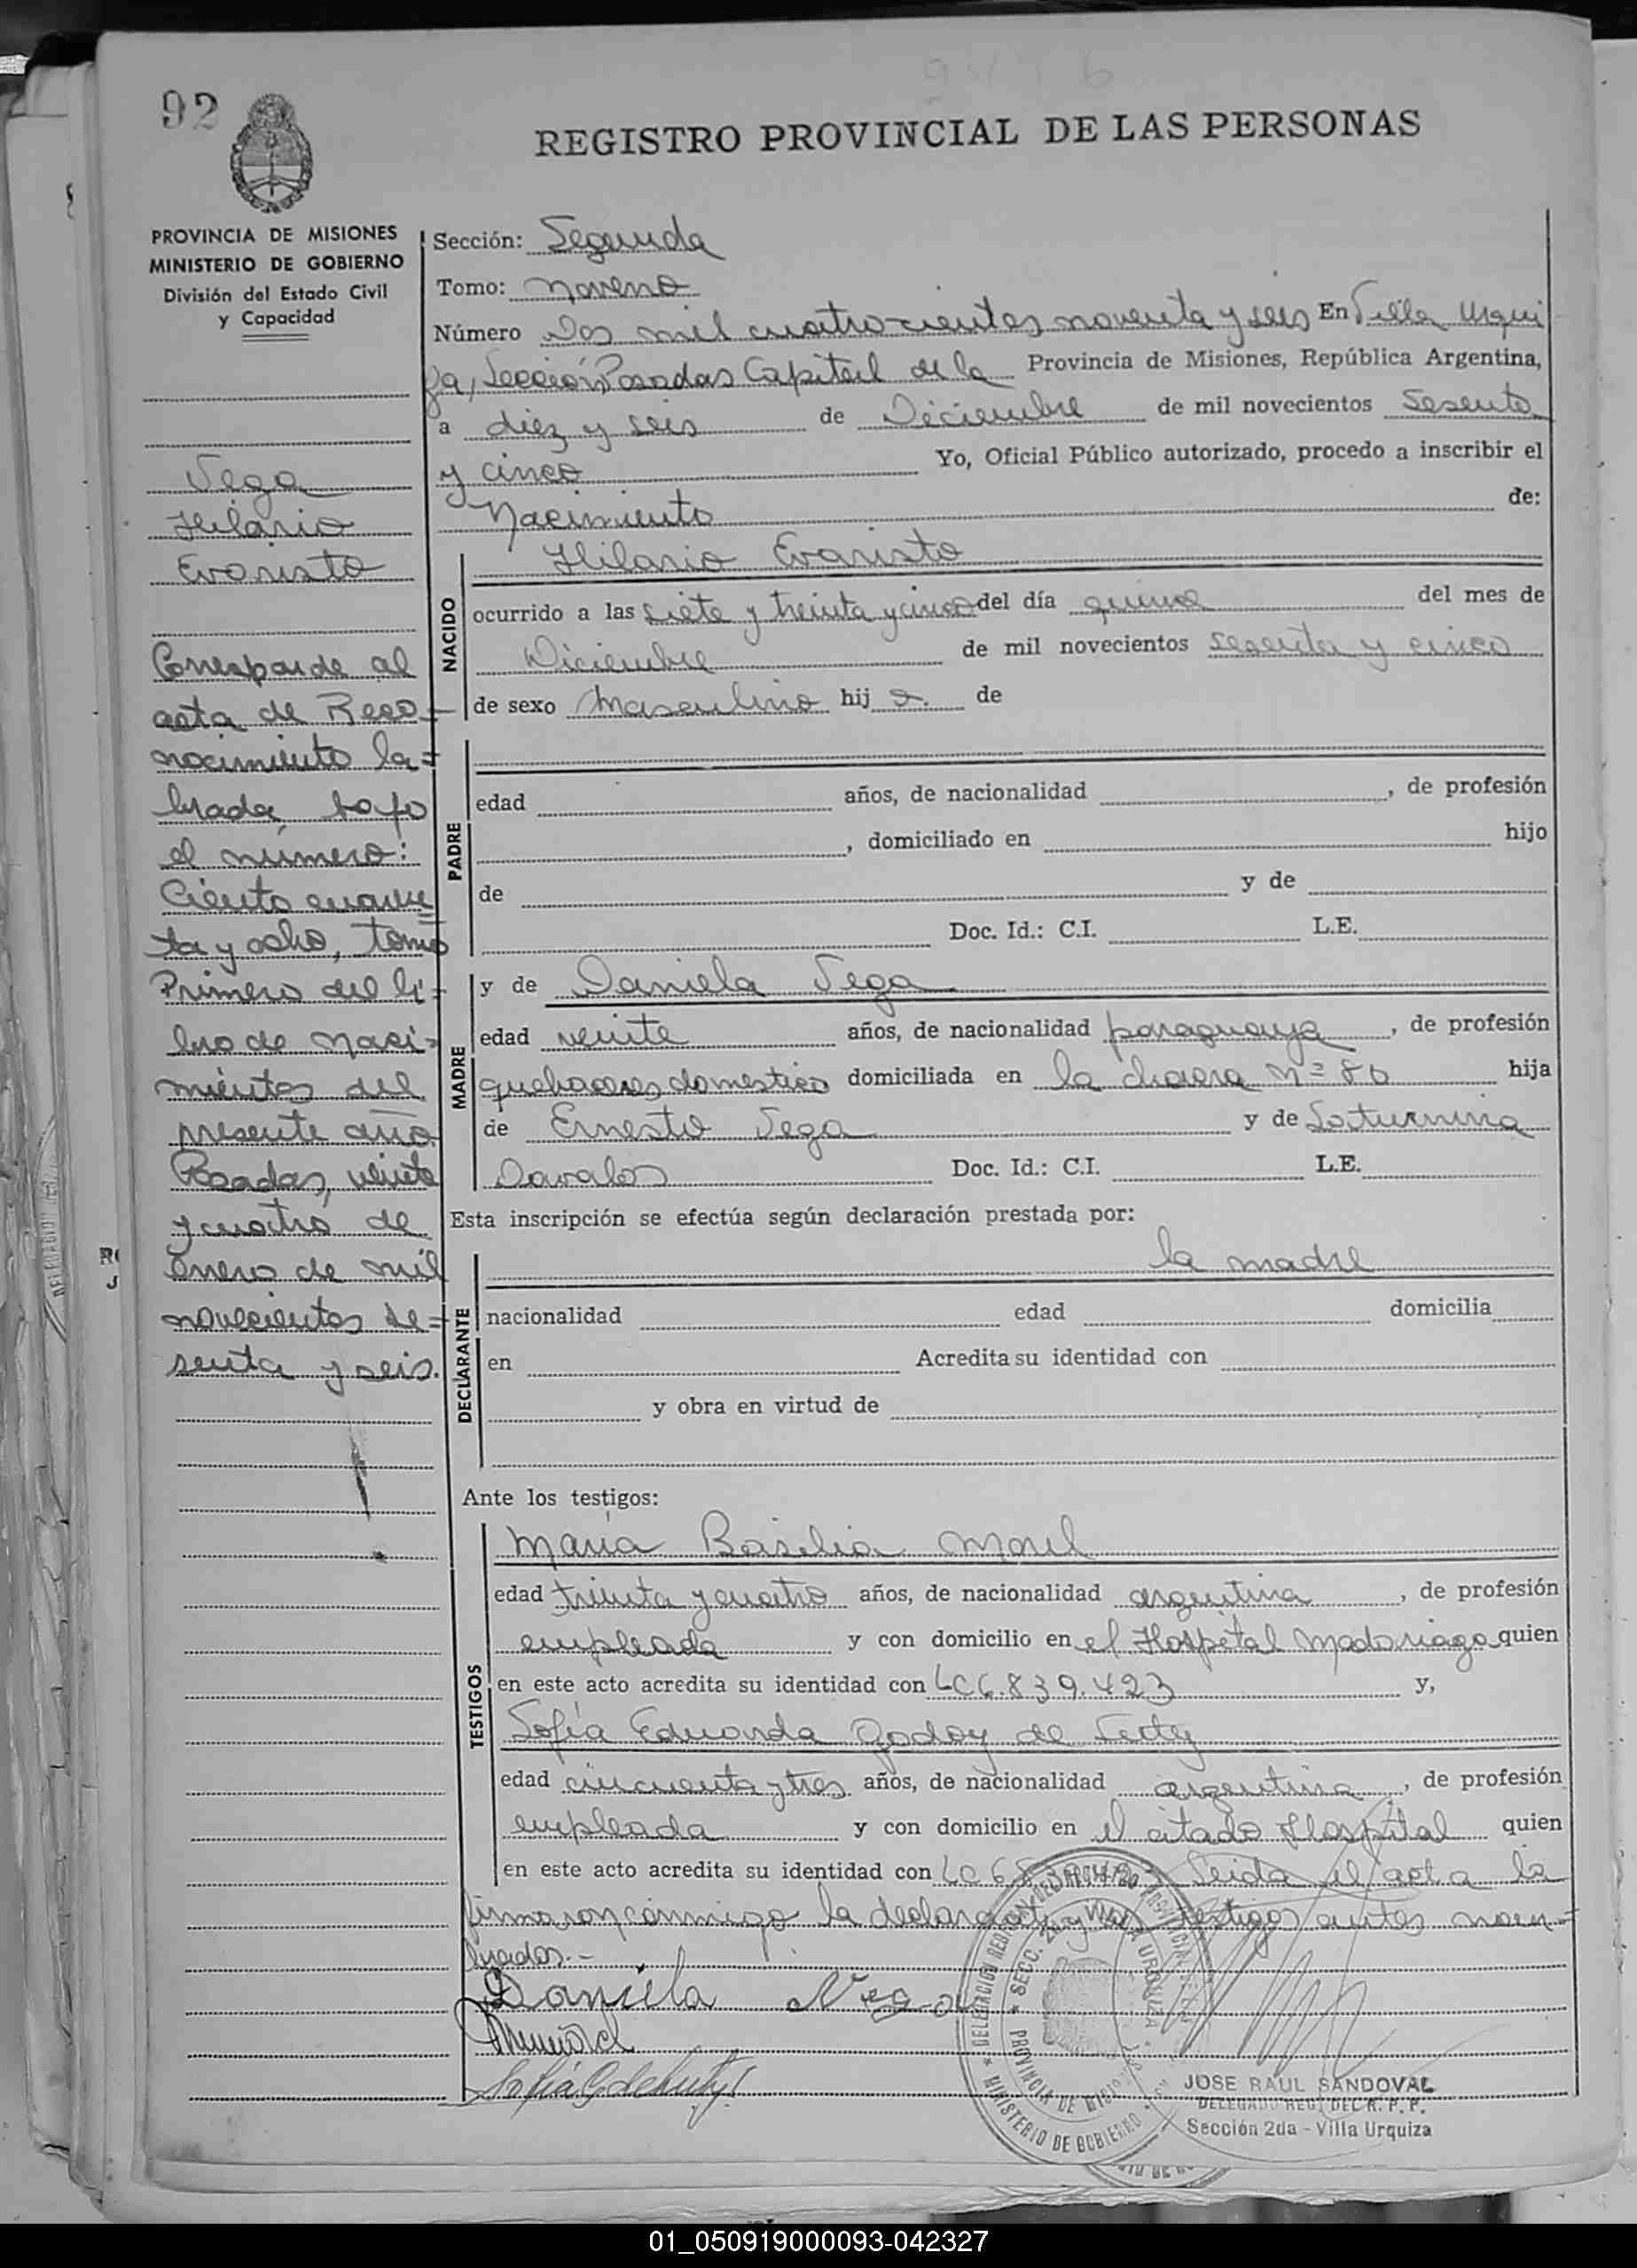 92
REGISTRO PROVINCIAL DE LAS PERSONAS
PROVINCIA DE MISIONES
MINISTERIO DE GOBIERNO
División del Estado Civil
y Capacidad
Vega
Hilario
Evaristo
Corresponde al
acta de Reco-
nocimiento la=
brada, bajo
el número:
Ciento cuaren=
ta y ocho, tomo
Primero del li=
bro de Naci=
mientos del
presente año.
Posadas, veinte
y cuatro de
Enero de mil
novecientos se=
senta y seis.
Sección: Segunda
Tomo: noveno
Número Dos mil cuatrocientos noventa y seis En Villa Urqui
za, Sección, Posadas Capital de la Provincia de Misiones, República Argentina,
a diez y seis de Diciembre de mil novecientos Sesenta
y cinco Yo, Oficial Público autorizado, procedo a inscribir el
Nacimiento de:
NACIDO
Hilario Evaristo
ocurrido a las siete y treinta y cinco del día quince del mes de
Diciembre de mil novecientos sesenta y cinco
de sexo Masculino hij o. de
PADRE
edad años, de nacionalidad , de profesión
, domiciliado en hijo
de y de
Doc. Id.: C.I. L.E.
MADRE
y de Daniela Vega
edad veinte años, de nacionalidad paraguaya, de profesión
quehaceres domestico domiciliada en la chacra Nº 80 hija
de Ernesto Vega y de Saturnina
Davalos Doc. Id.: C.I. L.E.
Esta inscripción se efectúa según declaración prestada por:
DECLARANTE
la madre
nacionalidad edad domicilia
en Acredita su identidad con
y obra en virtud de
Ante los testigos:
TESTIGOS
María Basilia Morel
edad treinta y cuatro años, de nacionalidad argentina, de profesión
empleada y con domicilio en el Hospital Madariaga quien
en este acto acredita su identidad con LC 6.839.423 y,
Sofía Eduarda Godoy de
edad cincuenta y tres años, de nacionalidad argentina, de profesión
empleada y con domicilio en el citado Hospital quien
en este acto acredita su identidad con LC Leida el acta la
firmaron conmigo la declarante y testigos antes nom=
brados.-
Daniela Vega
JOSE RAUL SANDOVAL
DELEGADO REG. DEL R. P. P.
Sección 2da - Villa Urquiza
01_050919000093-042327